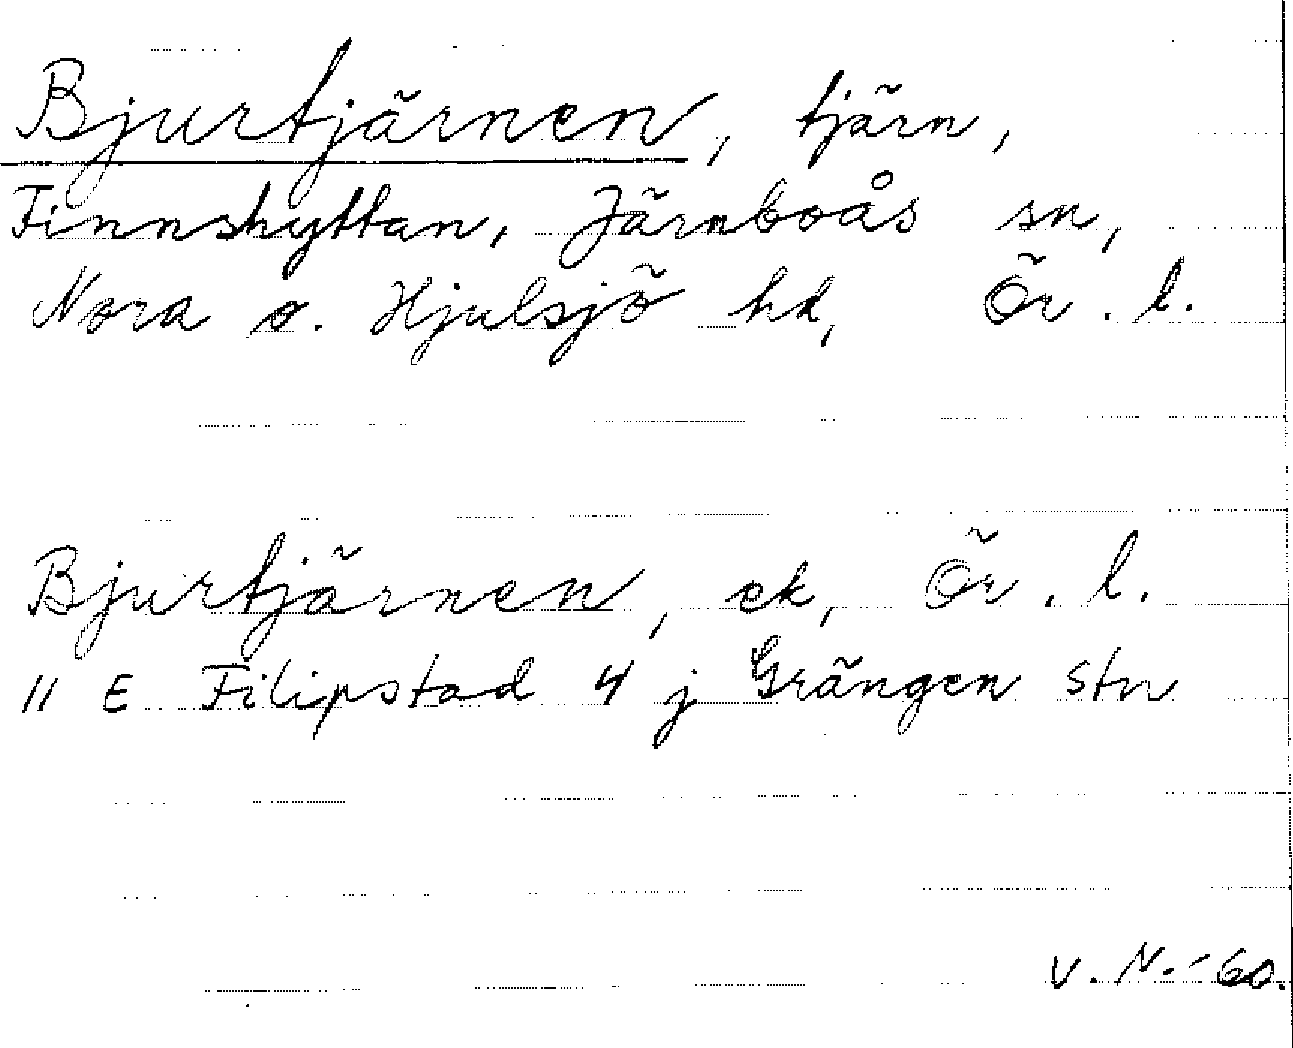 Bjurtjärnen, tjärn,
Finnshyttan, Järnboås sn,
Nora o. Hjulsjö hd, Ör. l.
Bjurtjärnen, ek, Ör. l.
11 E Filipstad 4 j Grängen stn
V. N. -60.